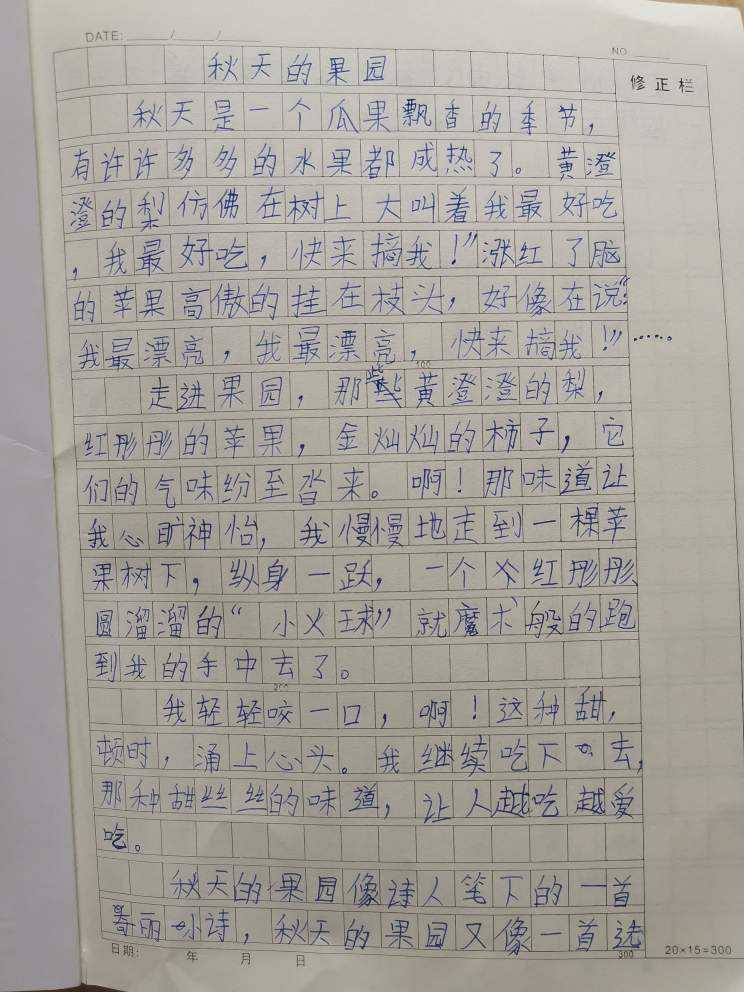 DATE: ____/____/____
NO ____
修正栏
秋天的果园
秋天是一个瓜果飘香的季节，
有许许多多的水果都成热了。黄澄
澄的梨仿佛在树上大叫着我最好吃
，我最好吃，快来搞我！”涨红了脑
的苹果高傲的挂在枝头，好像在说“
我最漂亮，我最漂亮，快来搞我！”……
100
走进果园，那些黄澄澄的梨，
红彤彤的苹果，金灿灿的柿子，它
们的气味纷至沓来。啊！那味道让
我心旷神怡，我慢慢地走到一棵苹
果树下，纵身一跃，一个个红彤彤、
圆溜溜的“小火球”就魔术般的跑
到我的手中去了。
200
我轻轻咬一口，啊！这种甜，
顿时，涌上心头。我继续吃下去，
那种甜丝丝的味道，让人越吃越爱
吃。
秋天的果园像诗人笔下的一首
小诗，秋天的果园又像一首选
300
日期： 年 月 日
20×15=300